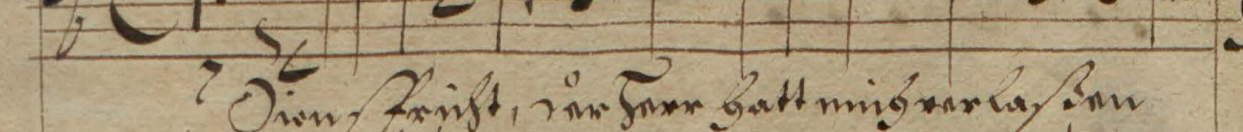 Zion spricht, der Herr hatt mich verlaßen